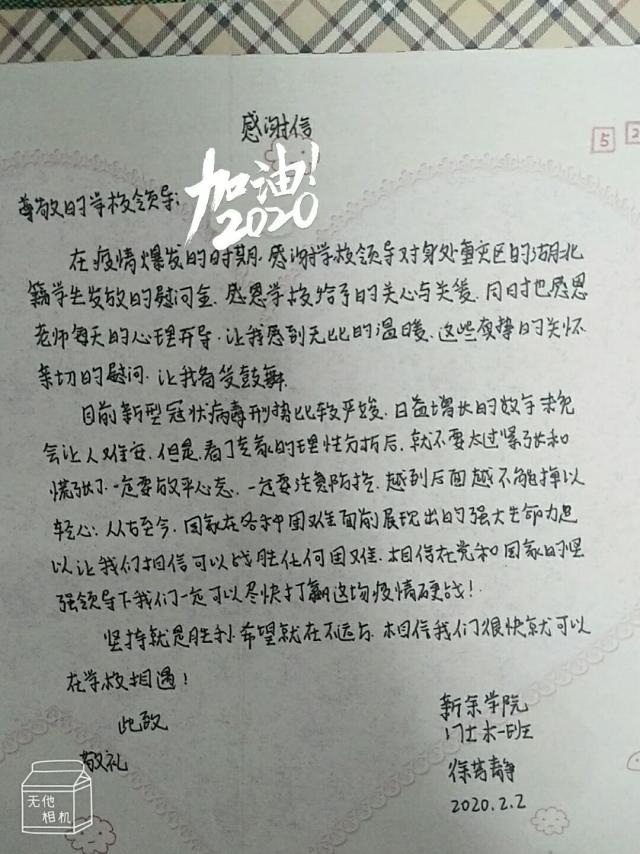 感谢信
5 2
加油!
2020
尊敬的学校领导:
在疫情爆发的时期,感谢学校领导对身处重灾区的湖北
籍学生发放的慰问金,感恩学校给予的关心与关爱,同时也感恩
老师每天的心理开导,让我感到无比的温暖,这些真挚的关怀
亲切的慰问,让我备受鼓舞.
目前新型冠状病毒形势比较严峻,日益增长的数字未免
会让人难安,但是,看了专家的理性分析后,就不要太过紧张和
慌张了.一定要放平心态,一定要注意防控,越到后面越不能掉以
轻心;从古至今,国家在各种困难面前展现出的强大生命力足
以让我们相信可以战胜任何困难.相信在党和国家的坚
强领导下我们一定可以尽快打赢这场疫情硬战!
坚持就是胜利,希望就在不远方,相信我们很快就可以
在学校相遇!
此致
敬礼
新余学院
17土木一班
徐 静
2020.2.2
无他
相机